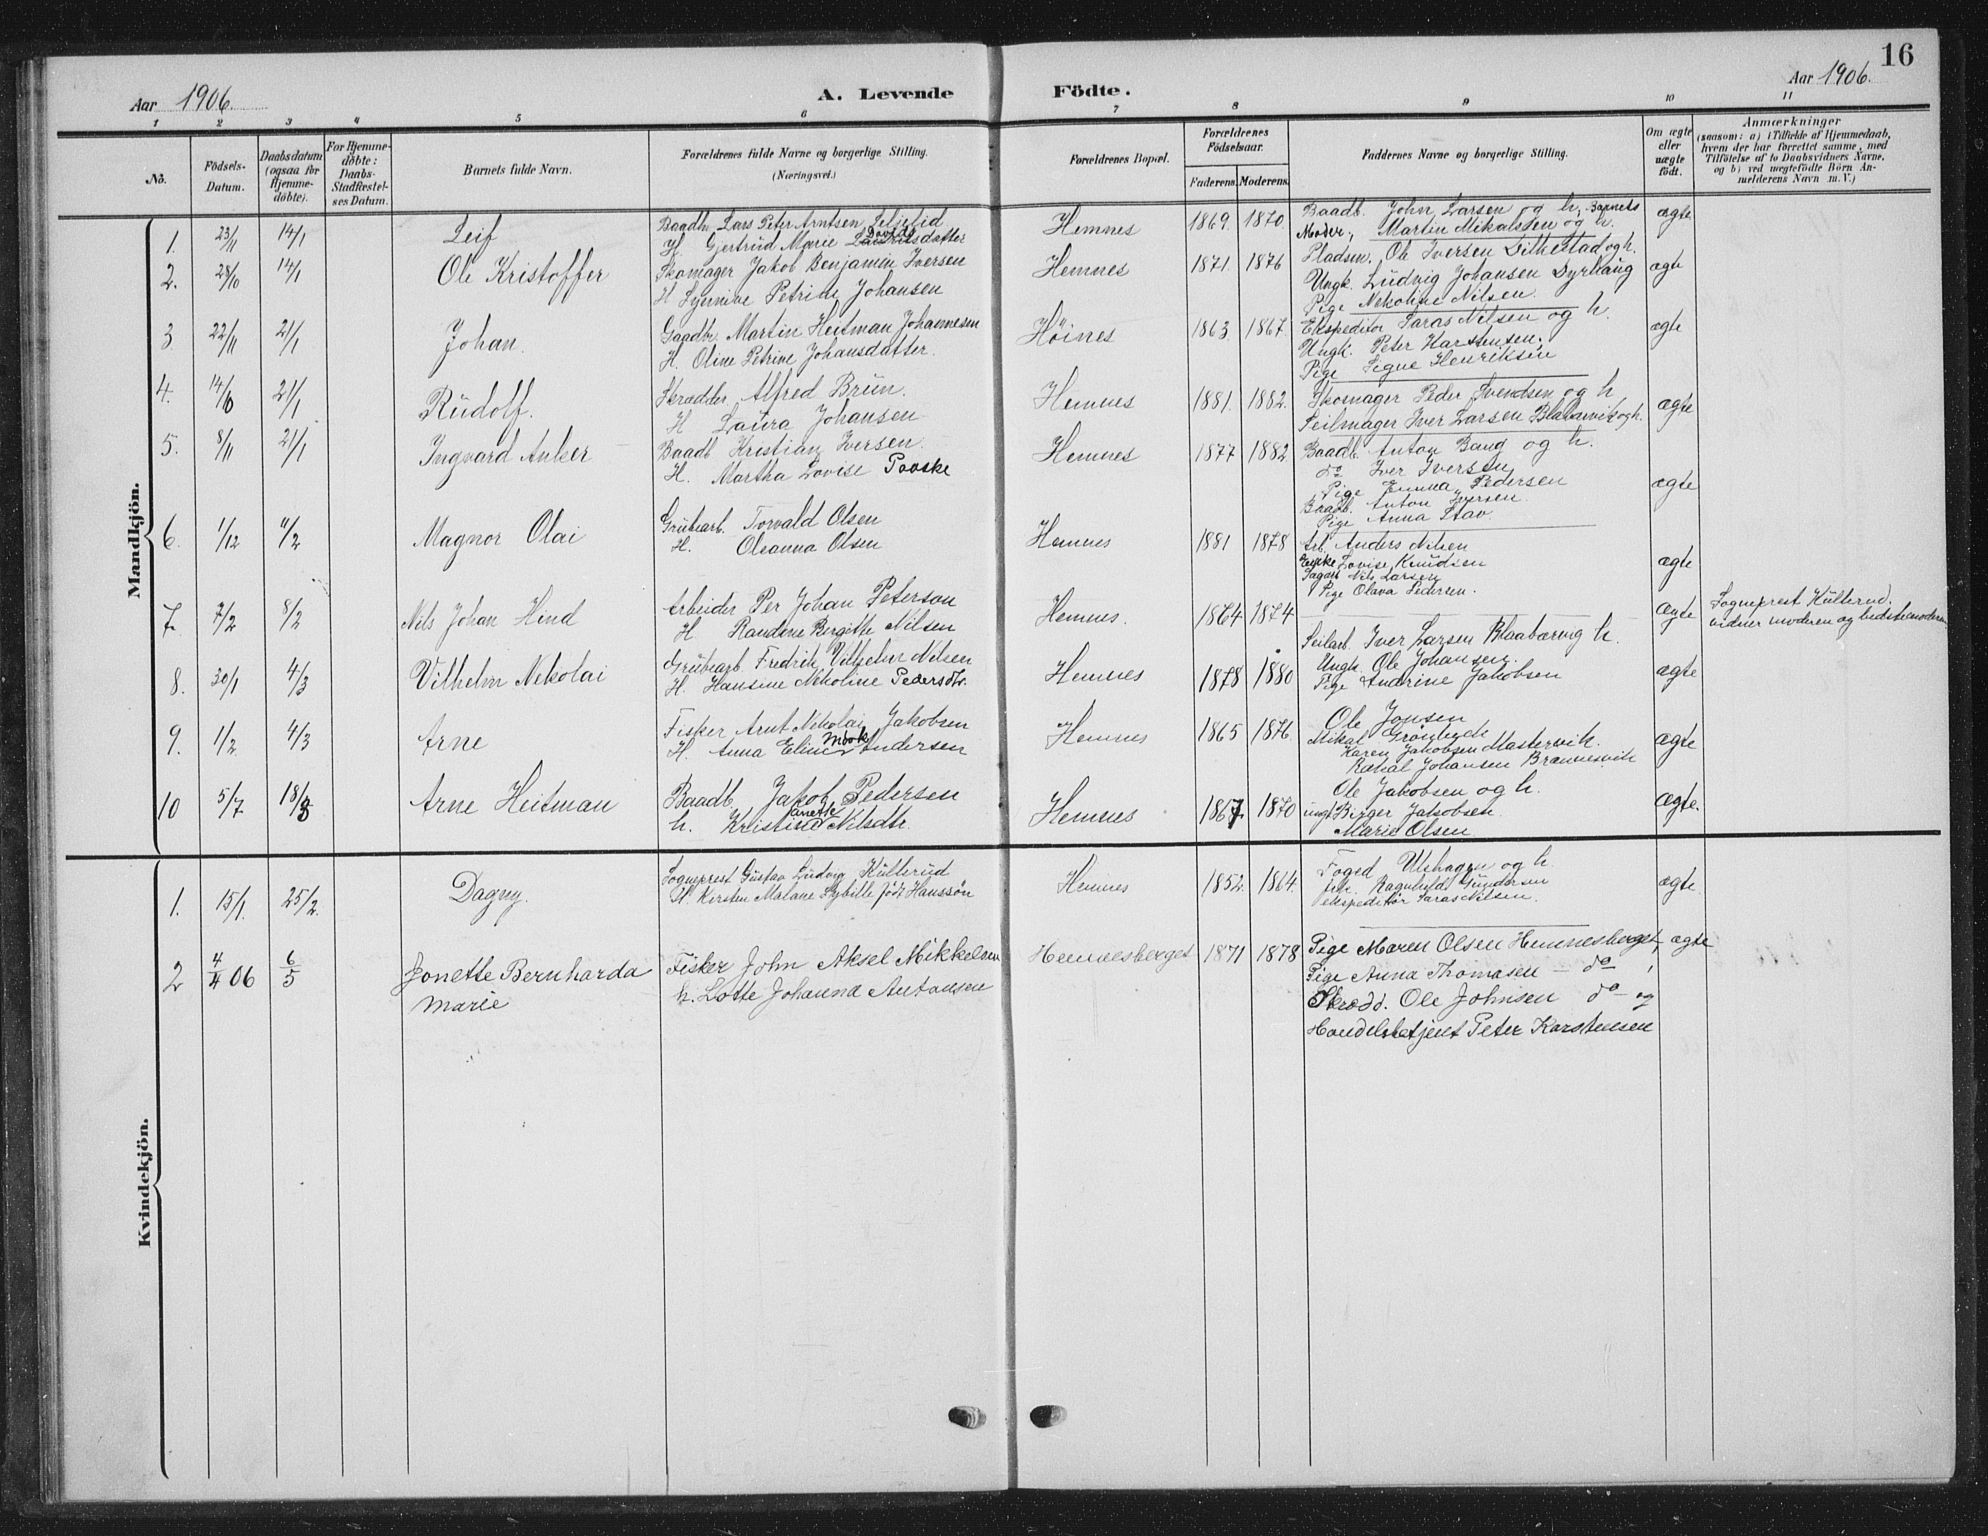 16
Aar 1906. A. Levende Födte. Aar 1906.
1 2 3 4 5 6 7 8 9 10 11
No.
Födsels-Datum.
Daabsdatum (ogsaa for Hjemme-døbte).
For Hjemme-døbte: Daabs-Stadfæstel-ses Datum.
Barnets fulde Navn.
Forældrenes fulde Navne og borgerlige Stilling.
(Næringsvei.)
Forældrenes Bopæl.
Forældrenes Födselsaar.
Faderens. Moderens.
Faddernes Navne og borgerlige Stilling.
Om ægte eller uægte født.
Anmærkninger
(saasom: a) i Tilfælde af Hjemmedaab,
hvem der har forrettet samme, med
Tilföielse af to Daabsvidners Navne,
og b) ved uægtefödte Börn An-
melderens Navn m. V.)
Mandkjön.
1. 23/11 14/1 Leif Baadb. Lars Peter Arntsen Hemnes 1869. 1870. Baadb. John Larsen og h, Barnets ægte
H. Gjertrud Marie Davids datter Moder, Martin Mikalsen og h.
2. 23/10 14/1 Ole Kristoffer Skomager Jakob Benjamin Iversen Hemnes 1871. 1876 Pladsm. Ole Iversen og h. ægte
H. Petrine Johansen Ungk. Ludvig Johansen Dyrhaug
Pige Nikoline Nilsen.
3 22/11 21/1 Johan. Gaadbr. Martin Heitman Johannesen Höines 1863 1867. Ekspeditor Saras Nilsen og h. ægte
H. Oline Petrine Johansdatter. Ungk. Peter Karstensen.
Pige Signe Henriksen
4. 21/1 Rudolf. Skrædder Alfred Brun. Hemnes 1881. 1882. Skomager Peder Svendsen og h ægte
H Laura Johansen Seilmager Iver Larsen Blabærvik og h.
5. 8/11 21/1 Ingvard Anker Baadb Kristian Iversen Hemnes 1877 1882 Baadb. Anton Baug og h.
H. Martha Lovise Paaske do Iver Iversen
Pige Emma Pedersen ægte
Baadb. Anton Iversen.
Pige Anna Stav.
6. 1/12 4/2 Magnor Olai Grubearb. Torvald Olsen Hemnes 1881 1878 Arb. Anders Nilsen
H. Oleanna Olsen Enke Lovise Knudsen ægte
Sagarb Nils Larsen
Pige Olava Pedersen.
7. 7/2 8/2 Nils Johan Hind Arbeider Per Johan Peterson Hemnes. 1864 1874 ægte Sogneprest Kulterud.
H Randine Birgitte Nilsen vidner moderen og bedstemoderen
8. 30/1 4/3 Vilhelm Nikolai Grubearb Fredrik Vilhelm Nilsen Hemnes 1878 1880 Seilarb. Iver Larsen Blaabærvig h. ægte
H. Hansine Nikoline Pedersdtr. Ungk. Ole Johansen.
Pige Andrine Jakobsen
9. 1/2 4/3 Arne Fisker Arnt Nikolai Jakobsen Hemnes 1865 1876. Ole Jonsen ægte
H. Anna Eline Andersen Mikal
Karen Jakobsen Mastervik.
Rakal Johansen
10 5/7 18/3 Arne Heitman Baadb. Jakob Pedersen Hemnes 1867 1870 Ole Jakobsen og h. ægte.
h. Kristine Anette Nilsdtr. ungk Birger Jakobsen.
Marie Olsen
Kvindekjön.
1. 15/1. 25/2. Dagny. Sogneprest Gustav Ludvig Kulterud Hemnes 1852. 1864. Foged og h. ægte
H. Kirsten Malane Sybille föd Hanssön frk. Ragnhild Gundersen
ekspeditör Saras Nilsen.
2 4/4 06 6/5 Jonette Bernharda Marie Fisker John Aksel Mikkelsen Hemnesberget 1871 1878 Pige Maren Olsen Hemnesberget, ægte
h. Lotte Johanna Antonsen Pige Anna Thomasen — do — ,
Skredd. Ole Johnsen do — og
Handelsbetjent Peter Karstensen